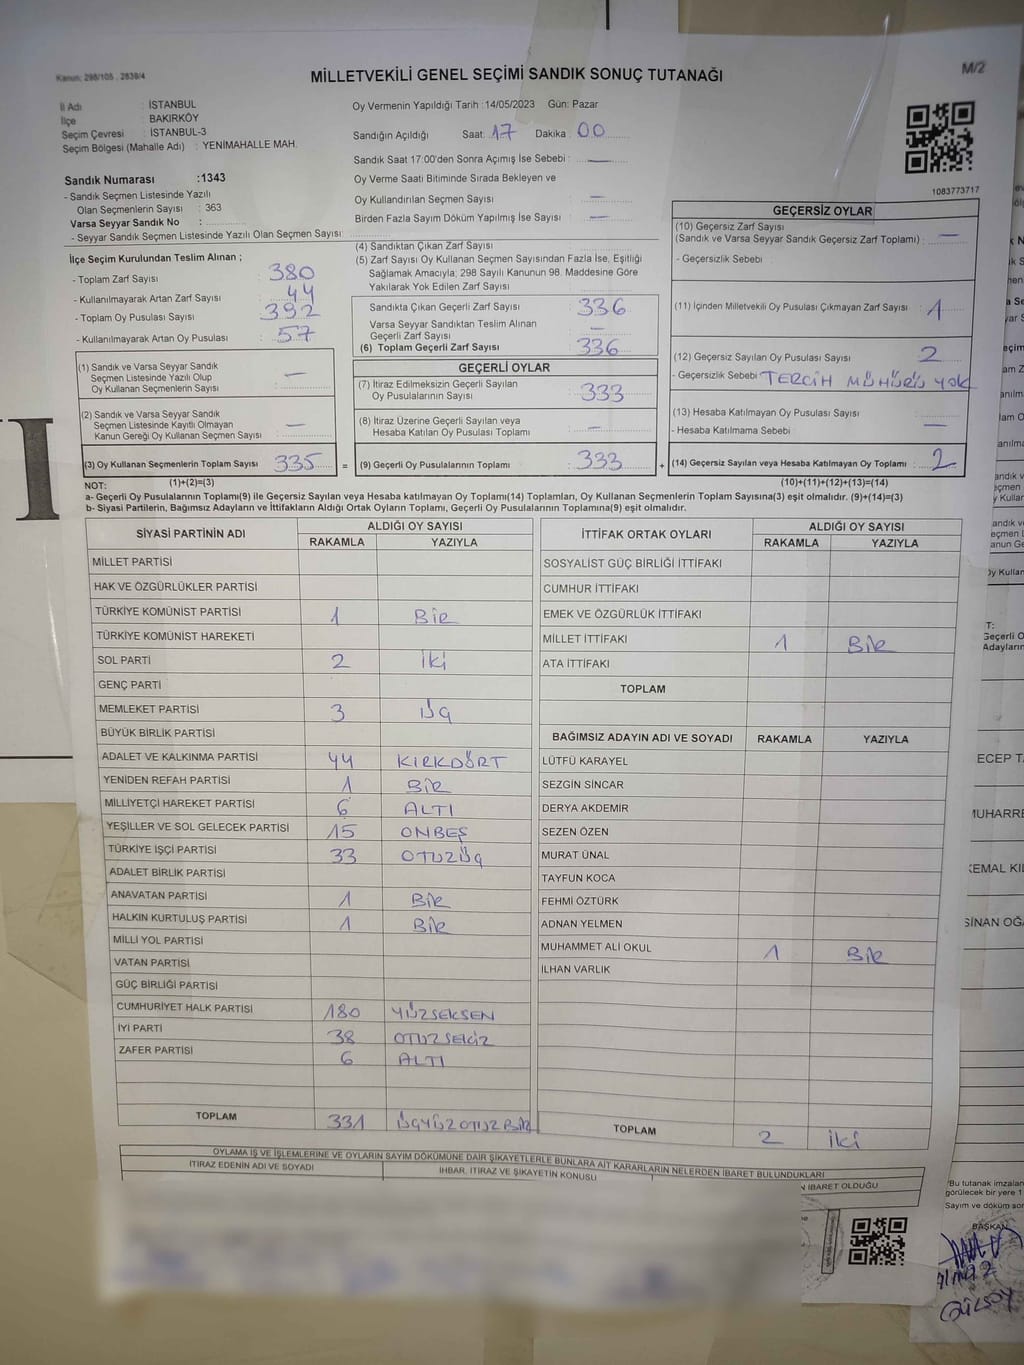 Kanun; 298/105 . 2839/4
MİLLETVEKİLİ GENEL SEÇİMİ SANDIK SONUÇ TUTANAĞI
M/2
İl Adı : İSTANBUL
İlçe : BAKIRKÖY
Seçim Çevresi : İSTANBUL-3
Seçim Bölgesi (Mahalle Adı) : YENİMAHALLE MAH.
Oy Vermenin Yapıldığı Tarih :14/05/2023 Gün: Pazar
Sandığın Açıldığı Saat: 17 Dakika : 00
Sandık Saat 17:00'den Sonra Açımış İse Sebebi : —
Sandık Numarası :1343
- Sandık Seçmen Listesinde Yazılı
Olan Seçmenlerin Sayısı : 363
Varsa Seyyar Sandık No :
- Seyyar Sandık Seçmen Listesinde Yazılı Olan Seçmen Sayısı:
Oy Verme Saati Bitiminde Sırada Bekleyen ve
Oy Kullandırılan Seçmen Sayısı : —
Birden Fazla Sayım Döküm Yapılmış İse Sayısı : —
1083773717
İlçe Seçim Kurulundan Teslim Alınan ;
- Toplam Zarf Sayısı : 380
- Kullanılmayarak Artan Zarf Sayısı : 44
- Toplam Oy Pusulası Sayısı : 392
- Kullanılmayarak Artan Oy Pusulası : 57
(1) Sandık ve Varsa Seyyar Sandık
Seçmen Listesinde Yazılı Olup
Oy Kullanan Seçmenlerin Sayısı : —
(2) Sandık ve Varsa Seyyar Sandık
Seçmen Listesinde Kayıtlı Olmayan
Kanun Gereği Oy Kullanan Seçmen Sayısı : —
(3) Oy Kullanan Seçmenlerin Toplam Sayısı : 335 =
(4) Sandıktan Çıkan Zarf Sayısı :
(5) Zarf Sayısı Oy Kullanan Seçmen Sayısından Fazla İse, Eşitliği
Sağlamak Amacıyla; 298 Sayılı Kanunun 98. Maddesine Göre
Yakılarak Yok Edilen Zarf Sayısı :
Sandıkta Çıkan Geçerli Zarf Sayısı : 336
Varsa Seyyar Sandıktan Teslim Alınan
Geçerli Zarf Sayısı : —
(6) Toplam Geçerli Zarf Sayısı : 336
GEÇERLİ OYLAR
(7) İtiraz Edilmeksizin Geçerli Sayılan
Oy Pusulalarının Sayısı : 333
(8) İtiraz Üzerine Geçerli Sayılan veya
Hesaba Katılan Oy Pusulası Toplamı : —
(9) Geçerli Oy Pusulalarının Toplamı : 333 +
GEÇERSİZ OYLAR
(10) Geçersiz Zarf Sayısı
(Sandık ve Varsa Seyyar Sandık Geçersiz Zarf Toplamı) : —
- Geçersizlik Sebebi :
(11) İçinden Milletvekili Oy Pusulası Çıkmayan Zarf Sayısı : 1
(12) Geçersiz Sayılan Oy Pusulası Sayısı : 2
- Geçersizlik Sebebi : TERCİH MÜHÜRÜ YOK
(13) Hesaba Katılmayan Oy Pusulası Sayısı :
- Hesaba Katılmama Sebebi : —
(14) Geçersiz Sayılan veya Hesaba Katılmayan Oy Toplamı : 2
NOT: (1)+(2)=(3) (10)+(11)+(12)+(13)=(14)
a- Geçerli Oy Pusulalarının Toplamı(9) ile Geçersiz Sayılan veya Hesaba katılmayan Oy Toplamı(14) Toplamları, Oy Kullanan Seçmenlerin Toplam Sayısına(3) eşit olmalıdır. (9)+(14)=(3)
b- Siyasi Partilerin, Bağımsız Adayların ve İttifakların Aldığı Ortak Oyların Toplamı, Geçerli Oy Pusulalarının Toplamına(9) eşit olmalıdır.
SİYASİ PARTİNİN ADI ALDIĞI OY SAYISI
RAKAMLA YAZIYLA
MİLLET PARTİSİ
HAK VE ÖZGÜRLÜKLER PARTİSİ
TÜRKİYE KOMÜNİST PARTİSİ 1 BİR
TÜRKİYE KOMÜNİST HAREKETİ
SOL PARTİ 2 İKİ
GENÇ PARTİ
MEMLEKET PARTİSİ 3 ÜÇ
BÜYÜK BİRLİK PARTİSİ
ADALET VE KALKINMA PARTİSİ 44 KIRKDÖRT
YENİDEN REFAH PARTİSİ 1 BİR
MİLLİYETÇİ HAREKET PARTİSİ 6 ALTI
YEŞİLLER VE SOL GELECEK PARTİSİ 15 ONBEŞ
TÜRKİYE İŞÇİ PARTİSİ 33 OTUZÜÇ
ADALET BİRLİK PARTİSİ
ANAVATAN PARTİSİ 1 BİR
HALKIN KURTULUŞ PARTİSİ 1 BİR
MİLLİ YOL PARTİSİ
VATAN PARTİSİ
GÜÇ BİRLİĞİ PARTİSİ
CUMHURİYET HALK PARTİSİ 180 YÜZSEKSEN
İYİ PARTİ 38 OTUZSEKİZ
ZAFER PARTİSİ 6 ALTI
TOPLAM 331 ÜÇYÜZOTUZBİR
İTTİFAK ORTAK OYLARI ALDIĞI OY SAYISI
RAKAMLA YAZIYLA
SOSYALİST GÜÇ BİRLİĞİ İTTİFAKI
CUMHUR İTTİFAKI
EMEK VE ÖZGÜRLÜK İTTİFAKI
MİLLET İTTİFAKI 1 BİR
ATA İTTİFAKI
TOPLAM
BAĞIMSIZ ADAYIN ADI VE SOYADI RAKAMLA YAZIYLA
LÜTFÜ KARAYEL
SEZGİN SİNCAR
DERYA AKDEMİR
SEZEN ÖZEN
MURAT ÜNAL
TAYFUN KOCA
FEHMİ ÖZTÜRK
ADNAN YELMEN
MUHAMMET ALİ OKUL 1 BİR
İLHAN VARLIK
TOPLAM 2 İKİ
OYLAMA İŞ VE İŞLEMLERİNE VE OYLARIN SAYIM DÖKÜMÜNE DAİR ŞİKAYETLERLE BUNLARA AİT KARARLARIN NELERDEN İBARET BULUNDUKLARI
İTİRAZ EDENİN ADI VE SOYADI İHBAR, İTİRAZ VE ŞİKAYETİN KONUSU
N İBARET OLDUĞU
ECEP T
MUHARRE
KEMAL KIL
SİNAN OĞ
"Bu tutanak imzalan
görülecek bir yere 1
Sayım ve döküm son
BAŞKAN
YILMAZ
GÜLSOY